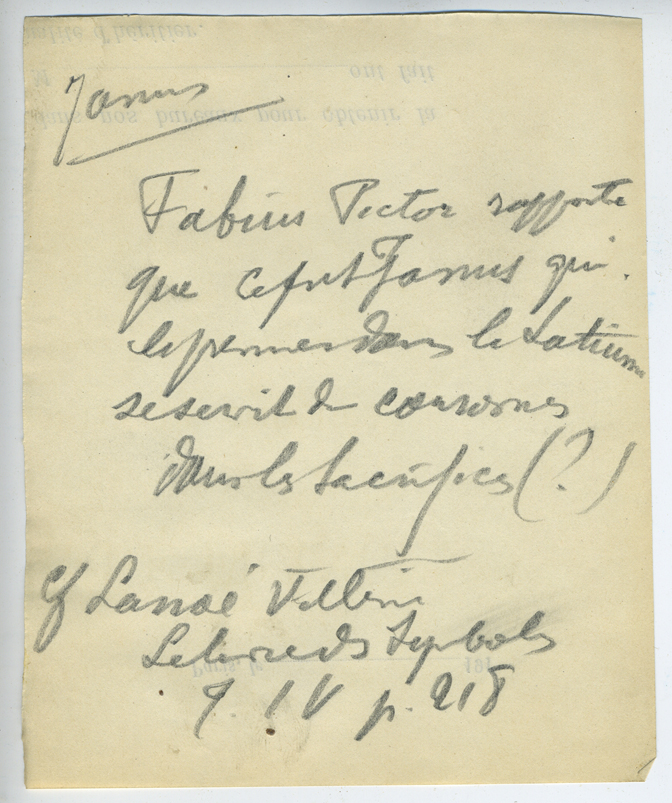 Janus
Fabius Pictor rapporte
que ce fut Janus qui
le premier dans le Latium
se servit de couronnes
dans les sacrifices (?)
Cf Lanoé Villène
Le livre des Symboles
T IV p. 218